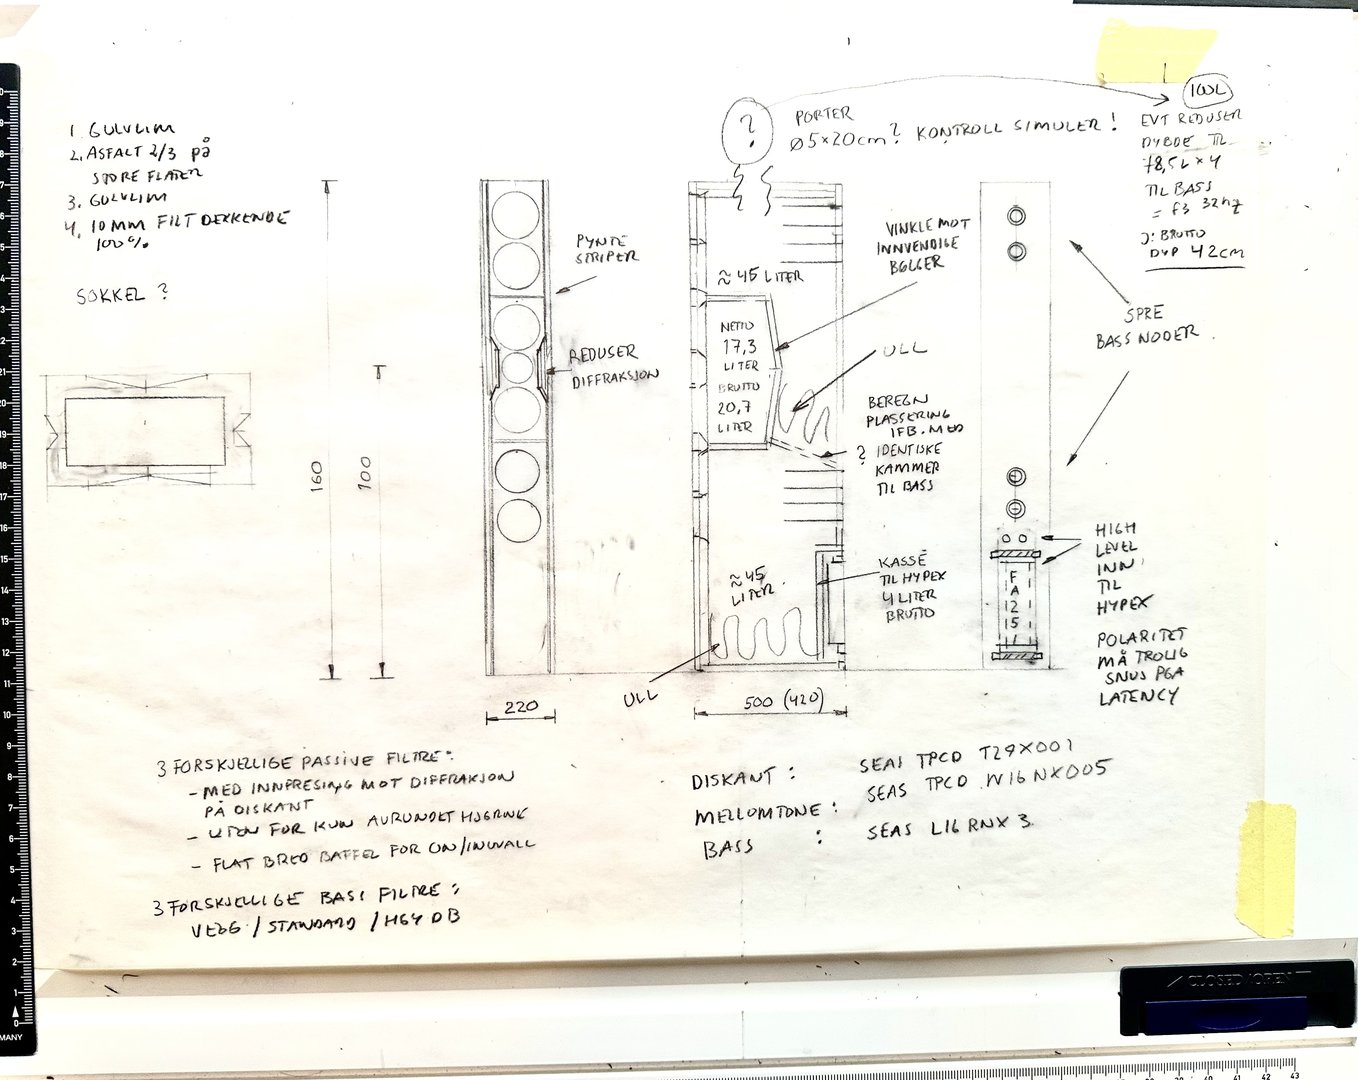 1. GULVLIM
2. ASFALT 2/3 på
STØRE FLATER
3. GULVLIM
4. 10 MM FILT DEKKENDE
100%
SOKKEL ?
160
100
PYNTE
STRIPER
REDUSER
DIFFRAKSJON
220
?
PORTER
Ø5×20cm? KONTROLL SIMULER!
100L
EVT REDUSER
DYBDE TIL
78,5L × 4
TIL BASS
= f3 32hz
BRUTTO
DYP 42cm
≈ 45 LITER
NETTO
17,3
LITER
BRUTTO
20,7
LITER
VINKLE MOT
INNVENDIGE
BØLGER
ULL
BEREGN
PLASSERING
IFB. MED
? IDENTISKE
KAMMER
TIL BASS
≈ 45
LITER
KASSE
TIL HYPEX
4 LITER
BRUTTO
ULL
500 (420)
SPRE
BASS NODER
HIGH
LEVEL
INN
TIL
HYPEX
FA1251
POLARITET
MÅ TROLIG
SNUS PGA
LATENCY
3 FORSKJELLIGE PASSIVE FILTRE:
- MED INNFRESING MOT DIFFRAKSJON
PÅ DISKANT
- UTEN FOR KUN AVRUNDET HJØRNE
- FLAT BRED BAFFEL FOR ON/INWALL
3 FORSKJELLIGE BASS FILTRE:
VEGG / STANDARD / HØY DB
DISKANT : SEAS TPCD T29X001
MELLOMTONE : SEAS TPCD W16NX005
BASS : SEAS L16RNX3
CLOSED / OPEN
MANY